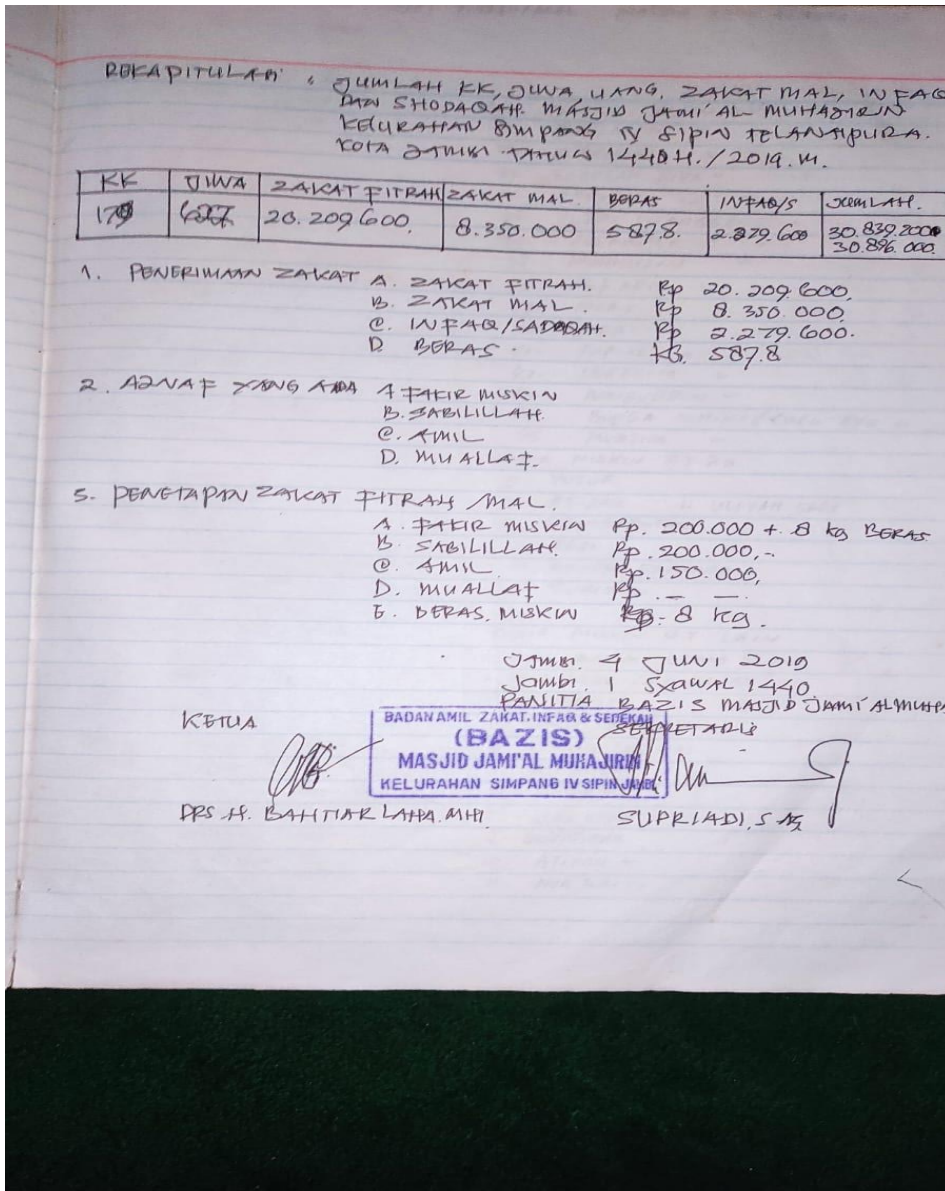 REKAPITULASI : JUMLAH KK, JIWA, UANG, ZAKAT MAL, INFAQ
DAN SHODAQAH. MASJID JAMI' AL MUHAJIRIN
KELURAHAN SIMPANG IV SIPIN TELANAIPURA.
KOTA JAMBI TAHUN 1440 H./2019.M.
KK JIWA ZAKAT FITRAH ZAKAT MAL. BERAS INFAQ/S JUMLAH.
20.209.600, 8.350.000 587.8. 2.279.600 30.839.200
30.896.000
1. PENERIMAAN ZAKAT A. ZAKAT FITRAH. Rp 20.209.600,
B. ZAKAT MAL. Rp 8.350.000,
C. INFAQ/SADAQAH. Rp 2.279.600.
D. BERAS. KG. 587.8
2. ASNAF YANG ADA A FAKIR MISKIN
B. SABILILLAH.
C. AMIL
D. MUALLAF.
3. PENETAPAN ZAKAT FITRAH/MAL.
A. FAKIR MISKIN Rp. 200.000 + 8 kg BERAS
B. SABILILLAH. Rp. 200.000,-
C. AMIL Rp. 150.000,
D. MUALLAF Rp. — —
E. BERAS. MISKIN 8 kg.
JAMBI. 4 JUNI 2019
Jambi. 1 SYAWAL 1440
PANITIA BAZIS MASJID JAMI' ALMUHA
KETUA SEKRETARIS
BADAN AMIL ZAKAT.INFAQ & SEDEKAH
(BAZIS)
MASJID JAMI'AL MUHAJIRIN
KELURAHAN SIMPANG IV SIPIN JAMBI
DRS. H. BAHTIAR LAHA. MHI SUPRIADI, S Ag